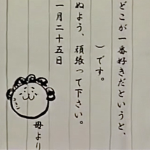 どこが一番好きだというと、
）です。
ぬよう、頑張って下さい。
一月二十五日
母より